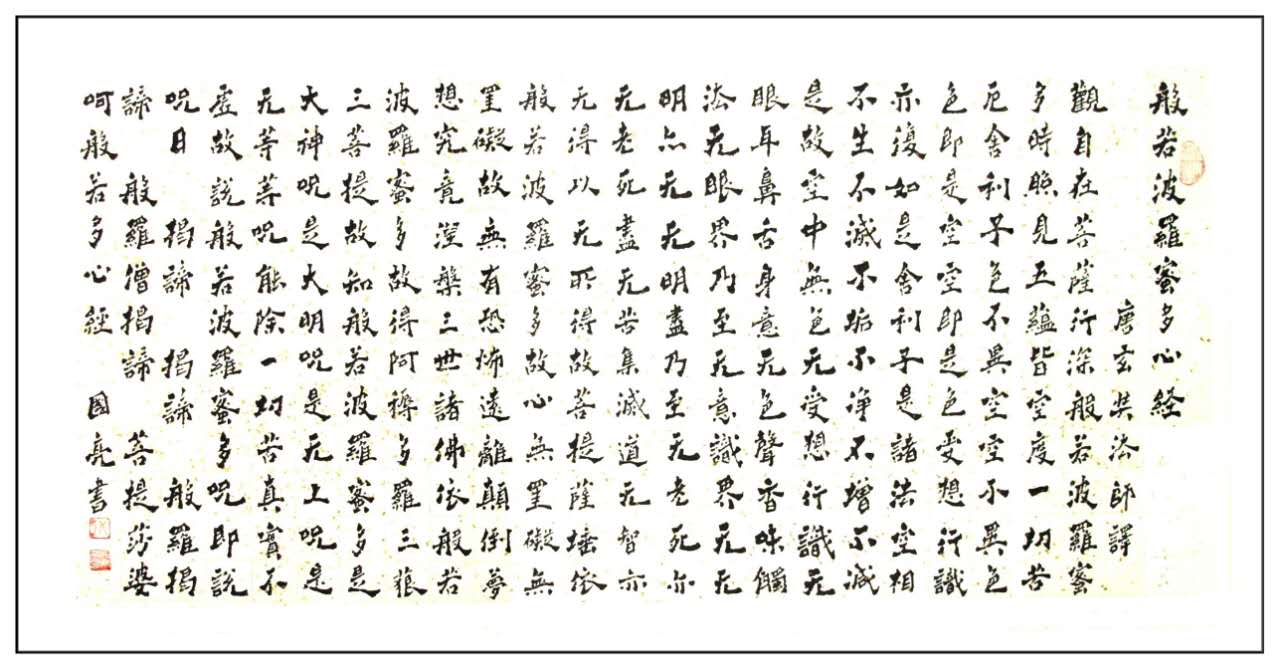 般若波羅蜜多心経
唐玄奘法師譯
觀自在菩薩行深般若波羅蜜
多時照見五蘊皆空度一切苦
厄舍利子色不異空空不異色
色即是空空即是色受想行識
亦復如是舍利子是諸法空相
不生不滅不垢不淨不增不減
是故空中無色无受想行識无
眼耳鼻舌身意无色聲香味觸
法无眼界乃至无意識界无无
明亦无无明盡乃至无老死亦
无老死盡无苦集滅道无智亦
无得以无所得故菩提薩埵依
般若波羅蜜多故心無罣礙無
罣礙故無有恐怖遠離顛倒夢
想究竟涅槃三世諸佛依般若
波羅蜜多故得阿耨多羅三藐
三菩提故知般若波羅蜜多是
大神咒是大明咒是无上咒是
无等等咒能除一切苦真實不
虛故說般若波羅蜜多咒即說
咒曰 揭諦 揭諦 般羅揭
諦 般羅僧揭諦 菩提莎婆
呵般若多心經 國亮書